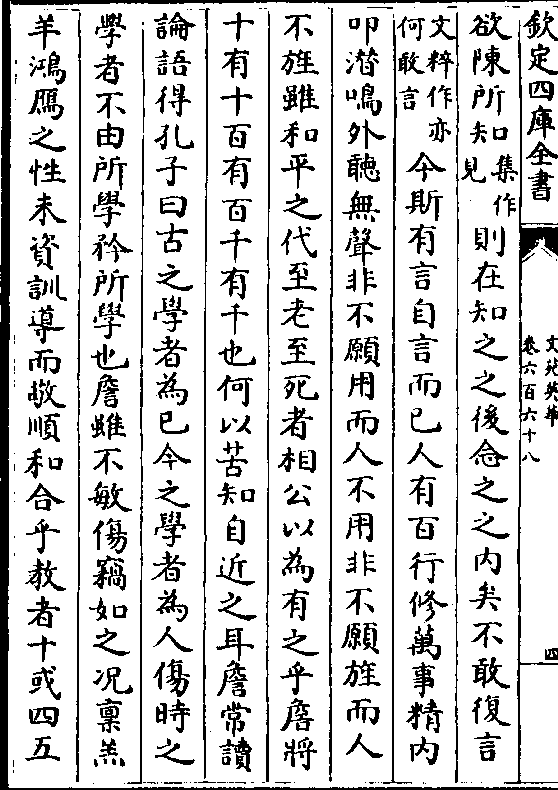 欽定四庫全書
文苑英華
卷六百六十八
四
欲陳所知見集作口則在知之之後念之之內矣不敢復言
文粹作亦何敢言今斯有言自言而已人有百行修萬事精內
叩潜鳴外聽無聲非不願用而人不用非不願旌而人
不旌雖和平之代至老至死者相公以為有之乎詹將
十有十百有百千有千也何以苦知自近之耳詹常讀
論語得孔子曰古之學者為已今之學者為人傷時之
學者不由所學矜所學也詹雖不敏傷竊如之况禀羔
羊鴻鴈之性未資訓導而敬順和合乎教者十或四五